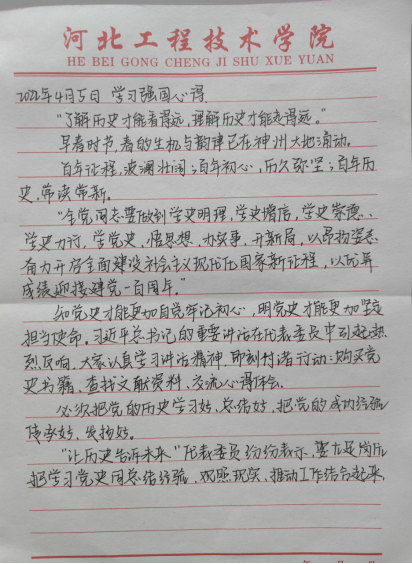 河北工程技术学院
HE BEI GONG CHENG JI SHU XUE YUAN
2022年4月5日 学习强国心得
"了解历史才能看得远，理解历史才能走得远。"
早春时节，春的生机与韵律已在神州大地涌动。
百年征程，波澜壮阔；百年初心，历久弥坚；百年历
史，常读常新。
"全党同志要做到学史明理，学史增信，学史崇德、
学史力行，学党史、悟思想、办实事、开新局，以昂扬姿态
奋力开启全面建设社会主义现代化国家新征程，以优异
成绩迎接建党一百周年。"
知党史才能更加自觉牢记初心，明党史才能更加坚定
担当使命，习近平总书记的重要讲话在代表委员中引起热
烈反响，大家认真学习讲话精神，即刻付诸行动：购买党
史书籍、查找文献资料、交流心得体会。
必须把党的历史学习好、总结好，把党的成功经验
传承好、发扬好。
"让历史告诉未来"代表委员纷纷表示，要立足岗位
把学习党史同总结经验、观照现实、推动工作结合起来，